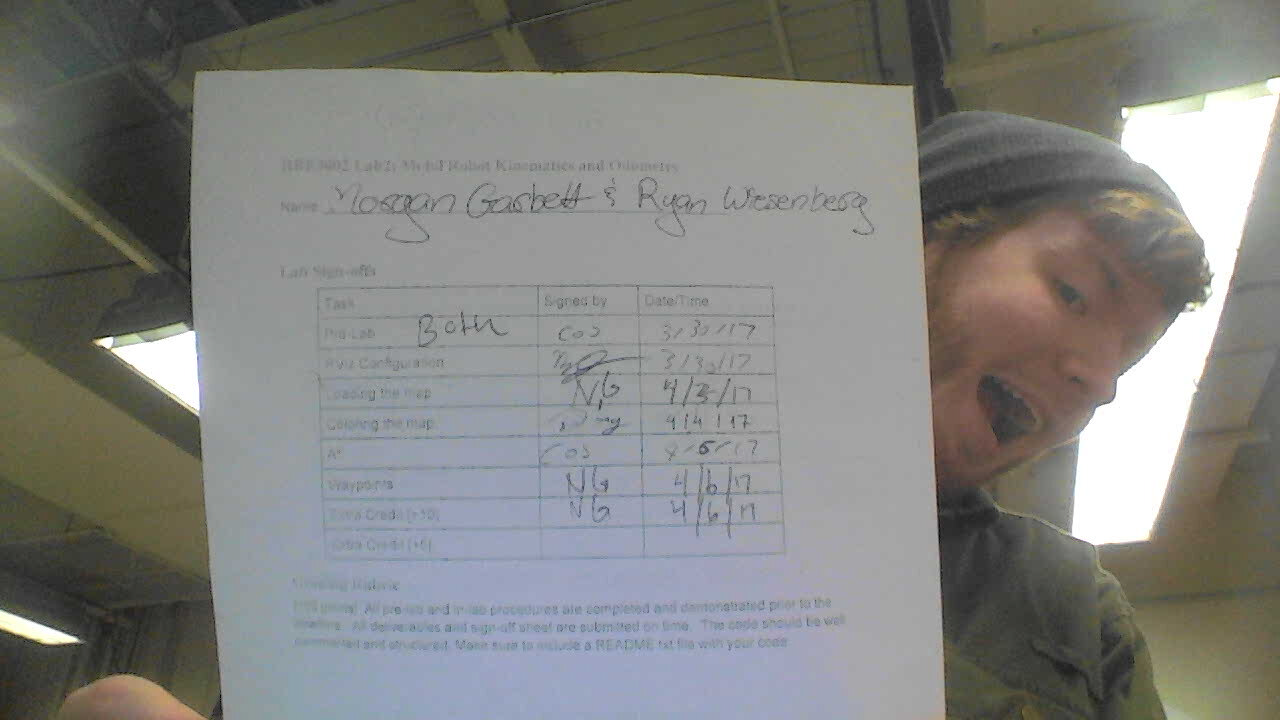 RBE3002 Lab2: Mobil Robot Kinematics and Odometry
Name: Morgan Garbett & Ryan Wiesenberg
Lab Sign-offs
Task Signed by Date/Time
Pre-Lab Both cos 3/30/17
Rviz Configuration 3/30/17
Loading the map NG 4/3/17
Coloring the map 4/4/17
A* cos 4/5/17
Waypoints NG 4/6/17
Extra Credit [+10] NG 4/6/17
Extra Credit [+5]
Grading Rubric
100 points! All pre-lab and in-lab procedures are completed and demonstrated prior to the
deadline. All deliverables and sign-off sheet are submitted on time. The code should be well
commented and structured. Make sure to include a README.txt file with your code